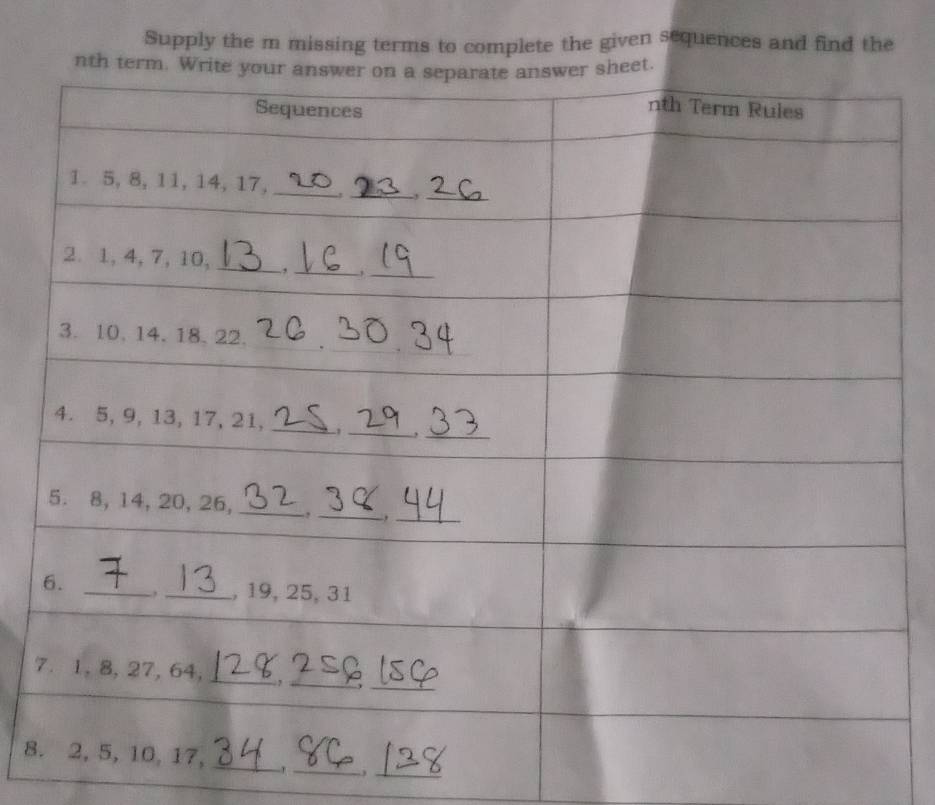 Supply the m missing terms to complete the given sequences and find the
nth term. Write your answer on a separate answer sheet.
Sequences nth Term Rules
1. 5, 8, 11, 14, 17, 20, 23, 26
2. 1, 4, 7, 10, 13, 16, 19
3. 10, 14, 18, 22, 26, 30, 34
4. 5, 9, 13, 17, 21, 25, 29, 33
5. 8, 14, 20, 26, 32, 38, 44
6. 7, 13, 19, 25, 31
7. 1, 8, 27, 64, 128, 256, 156
8. 2, 5, 10, 17, 34, 86, 138